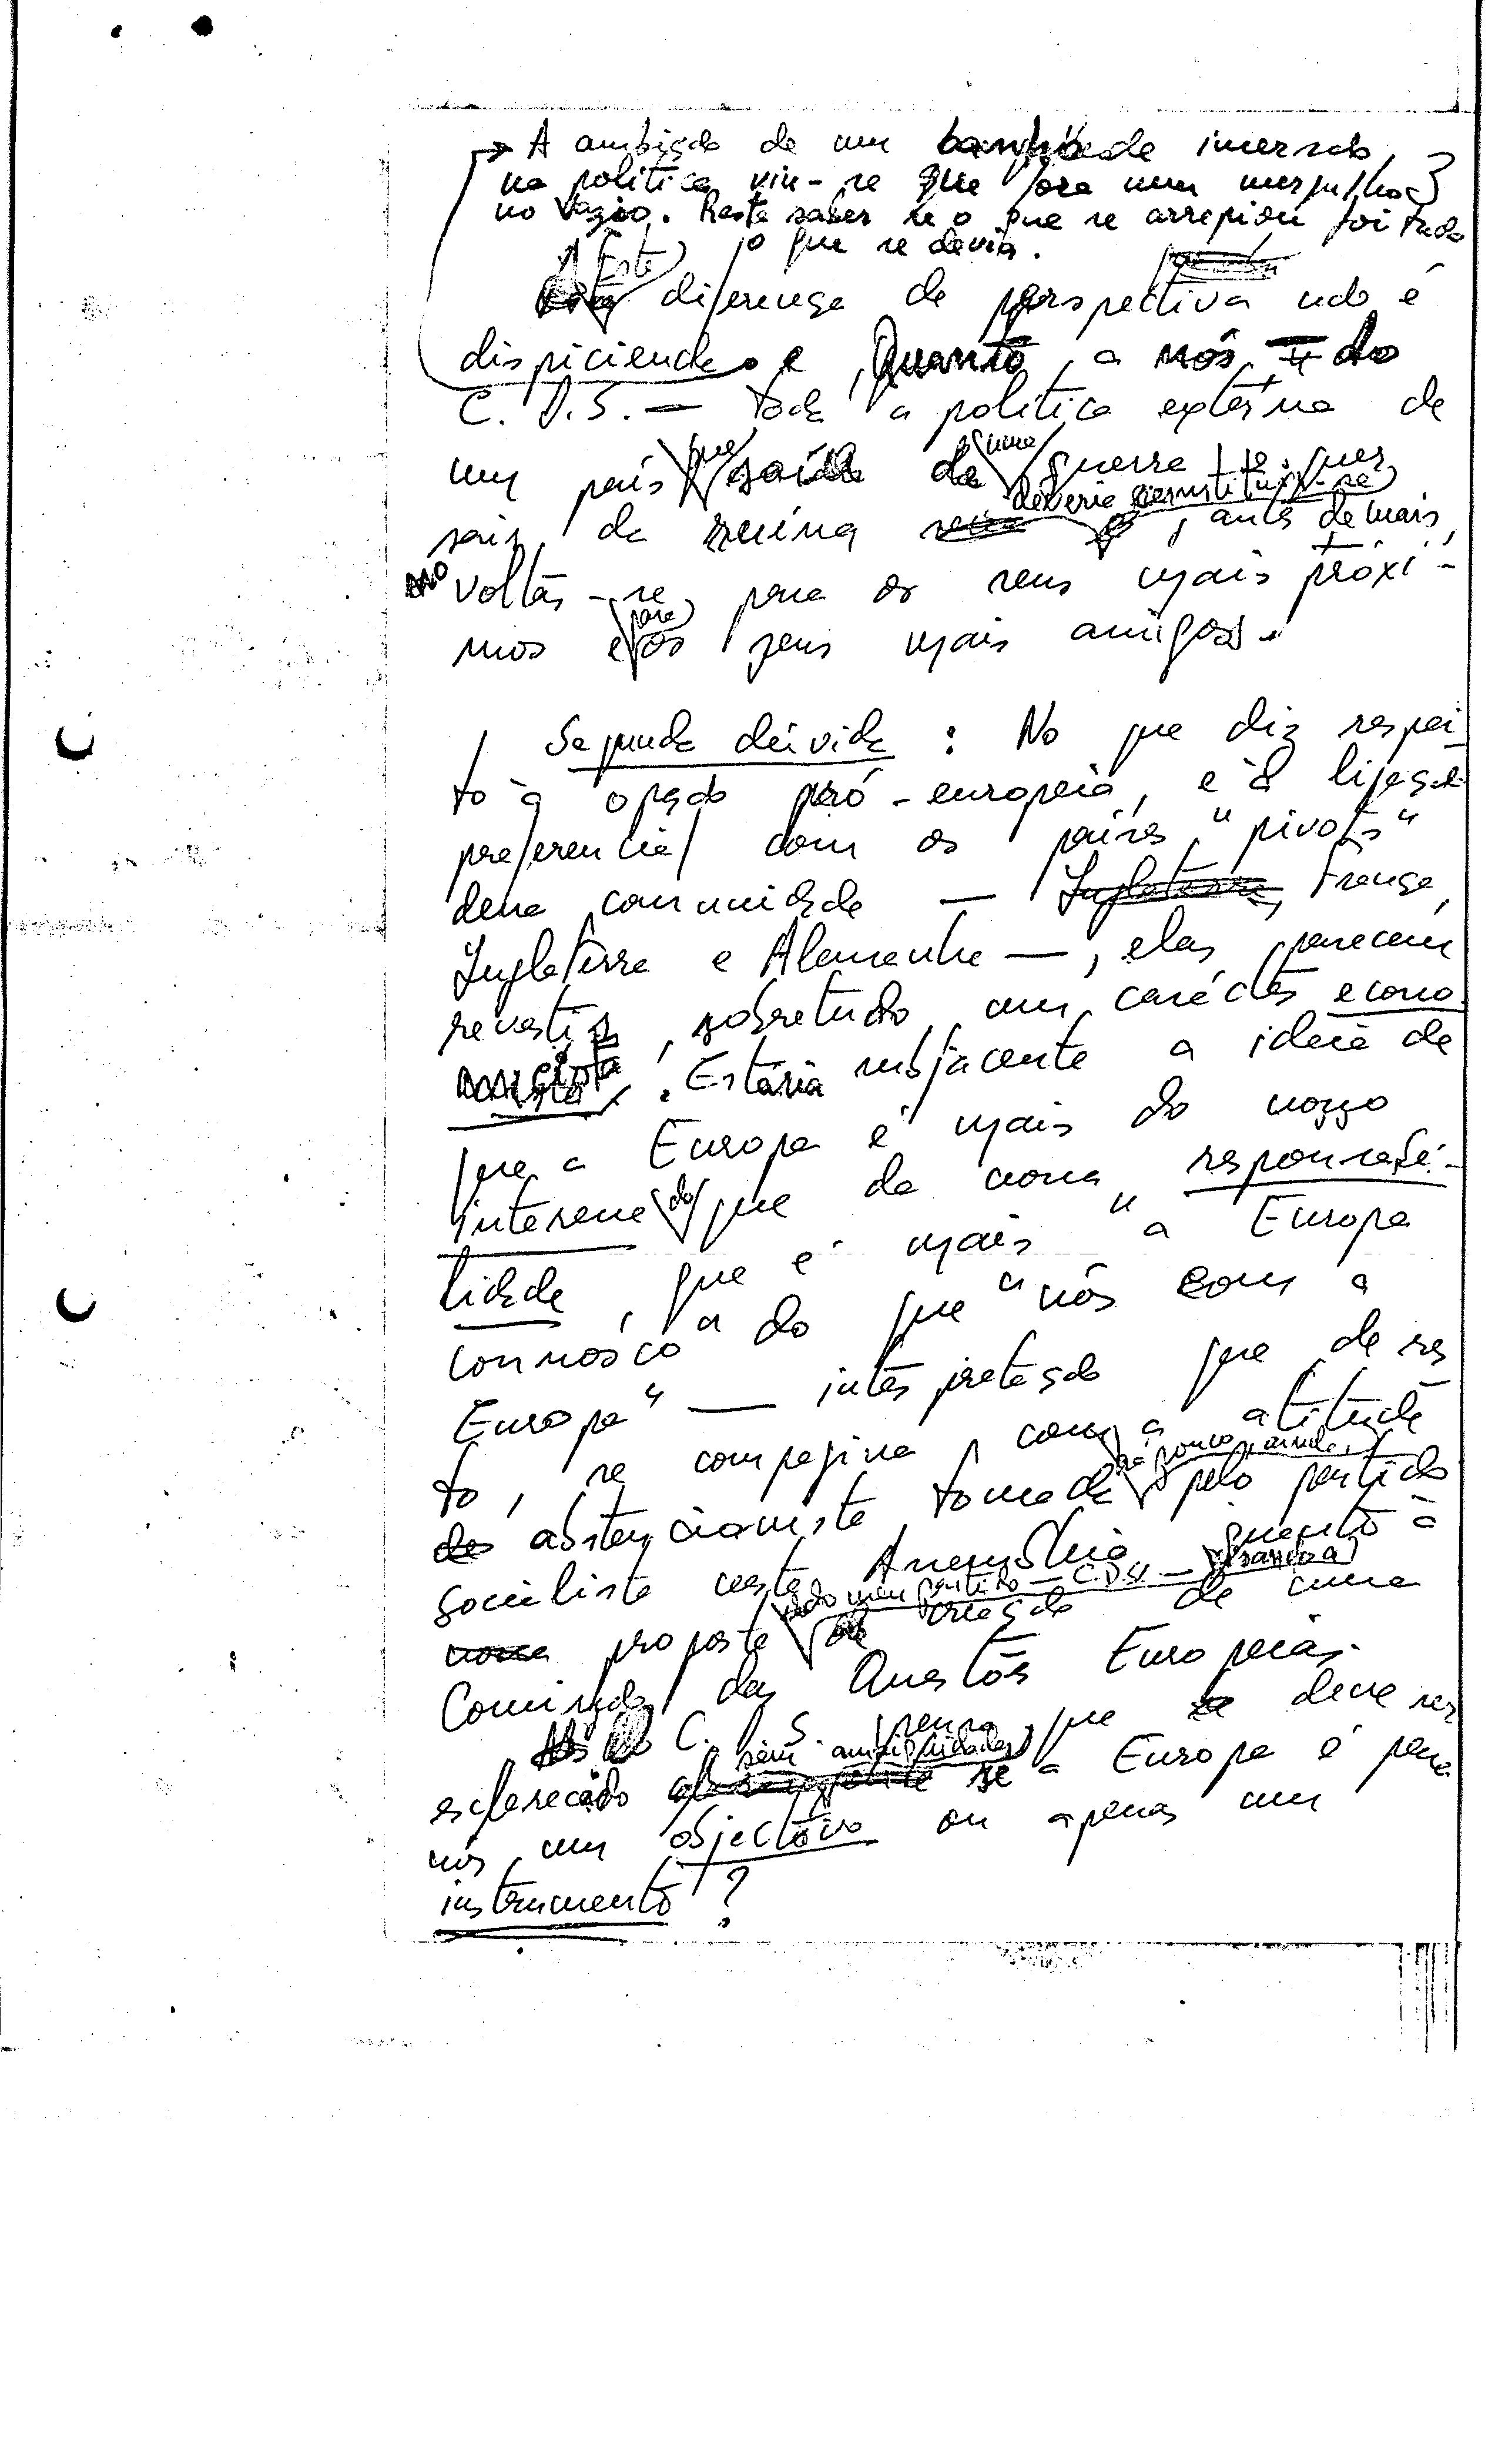 → A ambição de um banho de imersão,
na política viu-se que fora um mergulho
no vazio. Resta saber se o que se arrepiou foi tudo
o que se devia.
Esta diferença de perspectiva não é
dispicienda. Quanto a nós — do
C. D. S. — toda a política externa de
um país que saía de uma guerra e quer
sair da ruína deveria constituir-se, antes de mais,
no voltar-se para os seus mais próxi-
mos e para os seus mais amigos.
Segunda dúvida : No que diz respei-
to à opção pró-europeia, e à ligação
preferencial com os países "pivots"
dessa comunidade — Inglaterra, França,
Inglaterra e Alemanha —, elas parecem
revestir, sobretudo, um carácter econo
micista. Estaria subjacente a ideia de
que a Europa é mais do nosso
interesse do que da nossa responsabi-
lidade, que é mais "a Europa
connosco" do que "nós com a
Europa" — interpretação que de res
to, se compagina com a atitude
abstencionista tomada há pouco, ainda, pelo partido
socialista nesta Assembleia quanto à
nossa proposta do meu partido — C.D.S. — visando a criação de uma
Comissão das Questões Europeias.
O C. D. S. pensa que deve ser
esclarecido sem ambiguidades se a Europa é para
nós um objectivo ou apenas um
instrumento ?